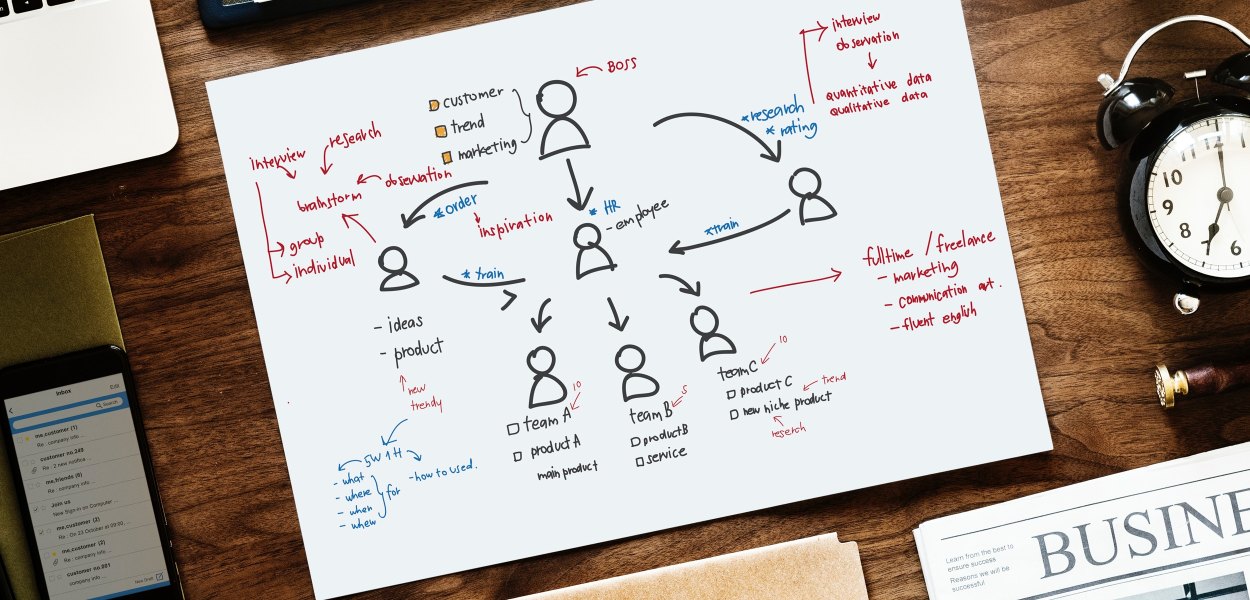 BOSS
customer
trend
marketing
interview
observation
quantitative data
qualitative data
*research
* rating
research
interview
observation
brainstorm
group
individual
*order
inspiration
* HR
- employee
*train
* train
- ideas
- product
new
trendy
5W 1H
- what
- where
- when
- whew
for
- how to used.
10
team A
product A
main product
5
team B
product B
service
10
team C
product C
new niche product
trend
research
fulltime / freelance
- marketing
- communication
- fluent english
10
9
8
7
6
Inbox
Edit
Search
me,customer (1)
Re : company info ...
customer no.245
Re : 2 new notifica ...
me,friends (6)
Re : company info ...
Join us
New Sign-in on Computer ...
me,customer (3)
Re : On 23 October at 09:00, ...
me,customer (2)
Re : company info ...
customer no.001
company info ...
New Draft
Learn from the best to
ensure success
Reasons we will be
successful
BUSINE